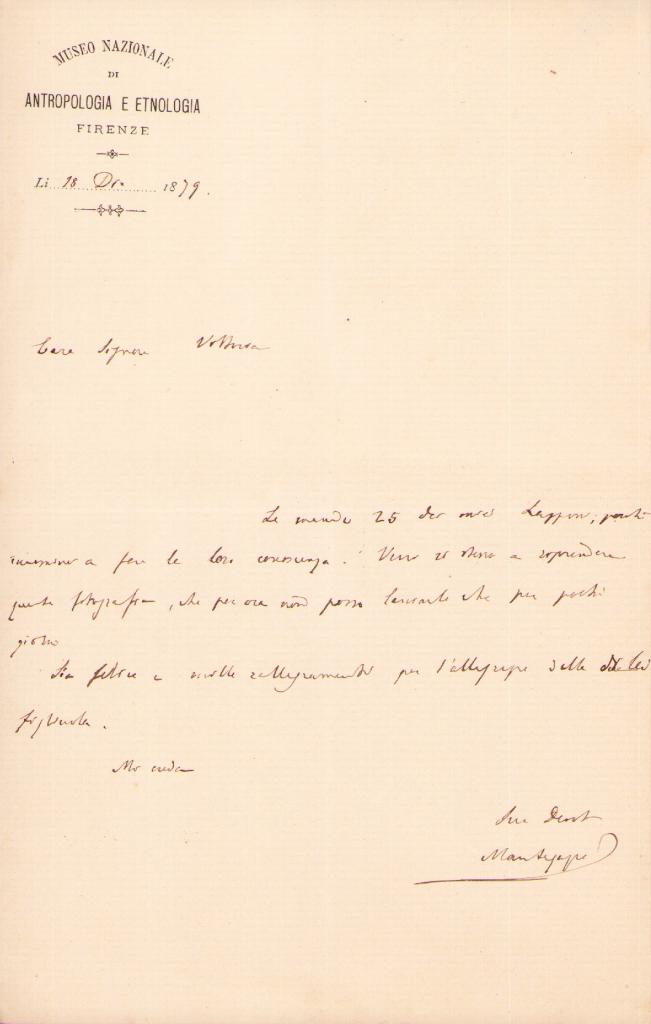 MUSEO NAZIONALE
DI
ANTROPOLOGIA E ETNOLOGIA
FIRENZE
Li 18 Dr. 1879.
Cara Signora
Le mando 25 dei miei Lapponi;
a fare la loro conoscenza. Verrò io stesso a riprendere
queste fotografie, che per ora non posso lasciarle che per pochi
giorni
Sia felice e mille rallegramenti per l'allegrezza della di Lei
figliuola.
Mi creda
Suo Devot
Mantegazza